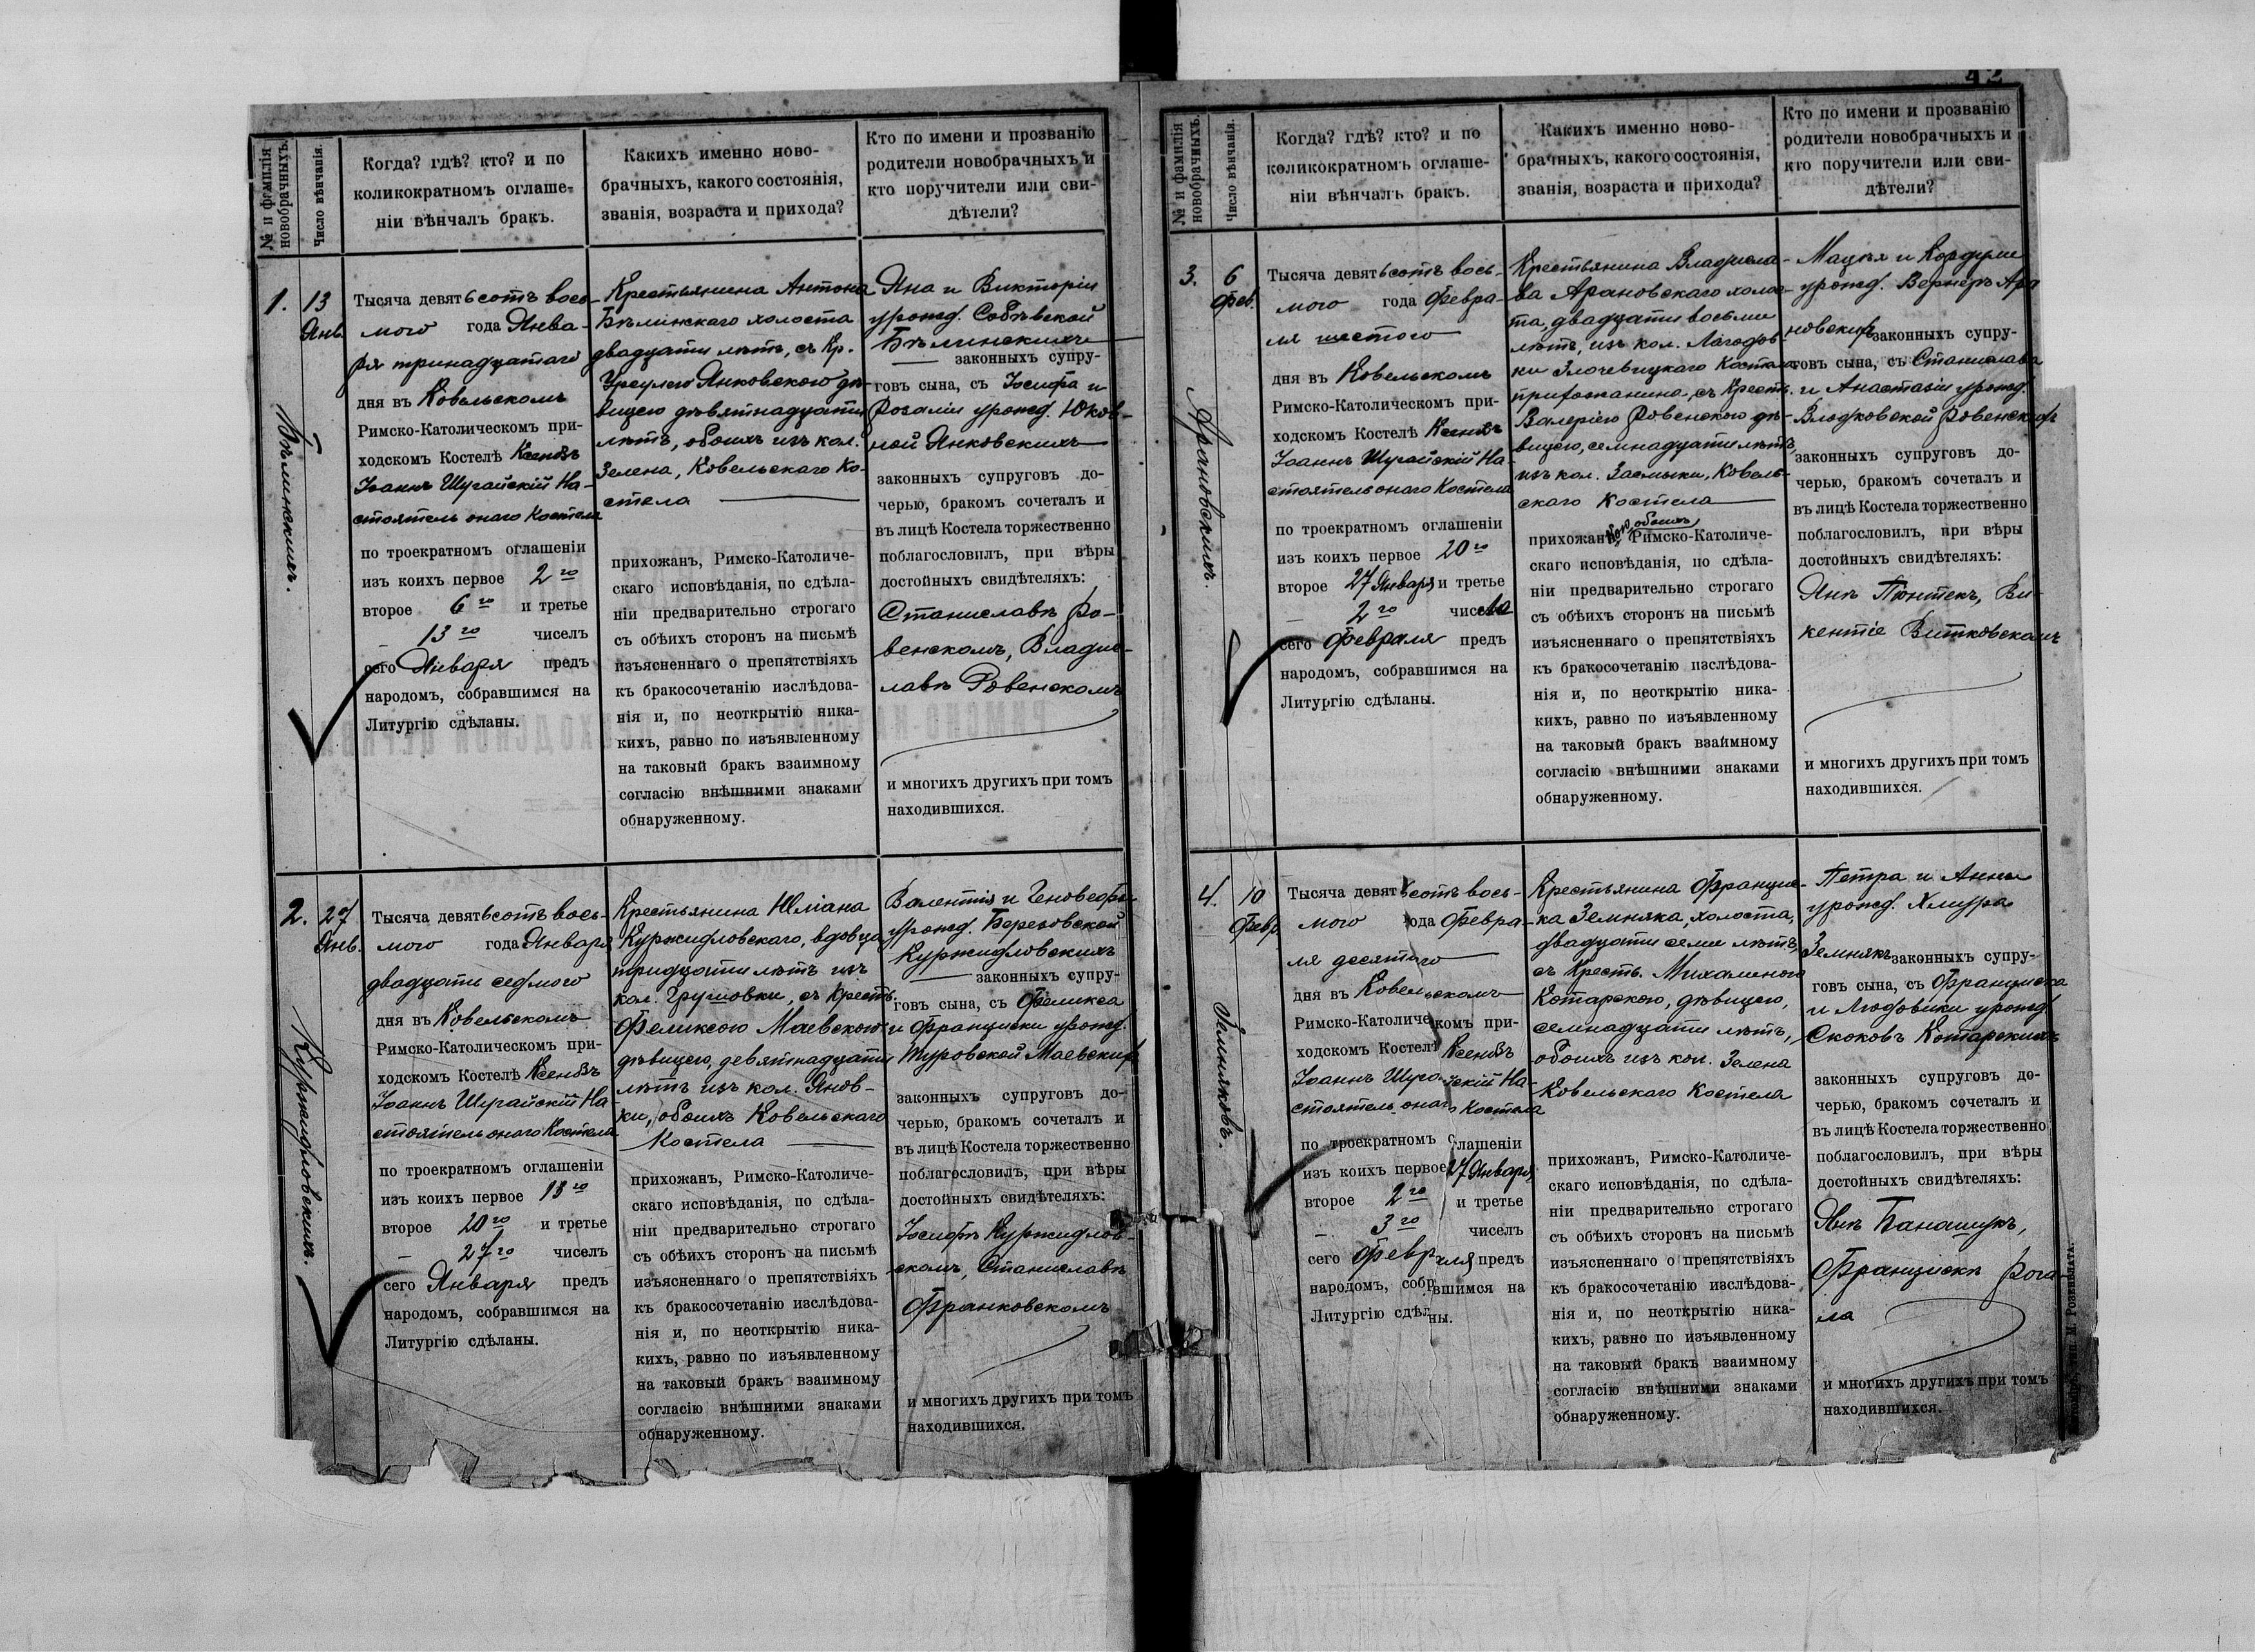 № и фамилія новобрачныхъ.
Число вѣнчанія.
Когда? гдѣ? кто? и по
коликократномъ оглаше-
ніи вѣнчалъ бракъ.
Какихъ именно ново-
брачныхъ, какого состоянія,
званія, возраста и прихода?
Кто по имени и прозванію
родители новобрачныхъ и
кто поручители или сви-
дѣтели?
1.
13
Янв.
Бѣлинскихъ.
Тысяча девятьсотъ вось-
мого года Янва-
ря тринадцатаго
дня въ Ковельскомъ
Римско-Католическомъ при-
ходскомъ Костелѣ Ксендзъ
Іоаннъ Шугайскій На-
стоятель онаго Костела
по троекратномъ оглашеніи
изъ коихъ первое 2го
второе 6го и третье
13го чиселъ
сего Января предъ
народомъ, собравшимся на
Литургію сдѣланы.
Крестьянина Антона
Бѣлинскаго холоста
двадцати лѣтъ, съ Кр.
Урсулею Янковскою дѣ-
вицею девятнадцати
лѣтъ, обоихъ изъ кол.
Зелена, Ковельскаго Ко-
стела
прихожанъ, Римско-Католиче-
скаго исповѣданія, по сдѣла-
ніи предварительно строгаго
съ обѣихъ сторонъ на письмѣ
изъясненнаго о препятствіяхъ
къ бракосочетанію изслѣдова-
нія и, по неоткрытію ника-
кихъ, равно по изъявленному
на таковый бракъ взаимному
согласію внѣшними знаками
обнаруженному.
Яна и Викторіи
урожд. Собѣвской
Бѣлинскихъ
законныхъ супру-
говъ сына, съ Іосифа и
Розаліи урожд. Юков-
ной Янковскихъ
законныхъ супруговъ до-
черью, бракомъ сочеталъ и
въ лицѣ Костела торжественно
поблагословилъ, при вѣры
достойныхъ свидѣтеляхъ:
Станиславѣ Ро-
венскомъ, Владис-
лавѣ Ровенскомъ
и многихъ другихъ при томъ
находившихся.
2.
27
Янв.
Куржидловскихъ.
Тысяча девятьсотъ вось-
мого года Января
двадцать седмого
дня въ Ковельскомъ
Римско-Католическомъ при-
ходскомъ Костелѣ Ксендзъ
Іоаннъ Шугайскій На-
стоятель онаго Костела
по троекратномъ оглашеніи
изъ коихъ первое 13го
второе 20го и третье
27го чиселъ
сего Января предъ
народомъ, собравшимся на
Литургію сдѣланы.
Крестьянина Юліана
Куржидловскаго, вдовца
тридцати лѣтъ изъ
кол. Грушовки, съ Крест.
Феликсою Маевскою
дѣвицею, девятнадцати
лѣтъ изъ кол. Янов-
ки, обоихъ Ковельскаго
Костела
прихожанъ, Римско-Католиче-
скаго исповѣданія, по сдѣла-
ніи предварительно строгаго
съ обѣихъ сторонъ на письмѣ
изъясненнаго о препятствіяхъ
къ бракосочетанію изслѣдова-
нія и, по неоткрытію ника-
кихъ, равно по изъявленному
на таковый бракъ взаимному
согласію внѣшними знаками
обнаруженному.
Валентія и Геновефы
урожд. Березовской
Куржидловскихъ
законныхъ супру-
говъ сына, съ Феликса
и Франциски урожд.
Туровской Маевскихъ
законныхъ супруговъ до-
черью, бракомъ сочеталъ и
въ лицѣ Костела торжественно
поблагословилъ, при вѣры
достойныхъ свидѣтеляхъ:
Іосифѣ Куржидлов-
скомъ, Станиславѣ
Франковскомъ
и многихъ другихъ при томъ
находившихся.
42
№ и фамилія новобрачныхъ.
Число вѣнчанія.
Когда? гдѣ? кто? и по
коликократномъ оглаше-
ніи вѣнчалъ бракъ.
Какихъ именно ново-
брачныхъ, какого состоянія,
званія, возраста и прихода?
Кто по имени и прозванію
родители новобрачныхъ и
кто поручители или сви-
дѣтели?
3.
6
Фев.
Арановскихъ.
Тысяча девятьсотъ вось-
мого года Февра-
ля шестого
дня въ Ковельскомъ
Римско-Католическомъ при-
ходскомъ Костелѣ Ксендзъ
Іоаннъ Шугайскій На-
стоятель онаго Костела
по троекратномъ оглашеніи
изъ коихъ первое 20го
второе 27 Января и третье
2го числа
сего Февраля предъ
народомъ, собравшимся на
Литургію сдѣланы.
Крестьянина Владисла-
ва Арановскаго холос-
та, двадцати восьми
лѣтъ, изъ кол. Лагодов-
ки Злочевицкаго Костела
прихожанина, съ Крест.
Валеріею Ровенскою дѣ-
вицею, семнадцати лѣтъ,
изъ кол. Засмыки, Ковель-
скаго Костела
прихожанкою, обоихъ Римско-Католиче-
скаго исповѣданія, по сдѣла-
ніи предварительно строгаго
съ обѣихъ сторонъ на письмѣ
изъясненнаго о препятствіяхъ
къ бракосочетанію изслѣдова-
нія и, по неоткрытію ника-
кихъ, равно по изъявленному
на таковый бракъ взаимному
согласію внѣшними знаками
обнаруженному.
Мацѣя и Кордули
урожд. Вернеръ Ара
новскихъ законныхъ супру-
говъ сына, съ Станислава
и Анастазіи урожд.
Влодковской Ровенскихъ
законныхъ супруговъ до-
черью, бракомъ сочеталъ и
въ лицѣ Костела торжественно
поблагословилъ, при вѣры
достойныхъ свидѣтеляхъ:
Янѣ Піонтекъ, Ви-
кентіе Витковскомъ
и многихъ другихъ при томъ
находившихся.
4.
10
Февр.
Земняковъ.
Тысяча девятьсотъ вось-
мого года Февра-
ля десятого
дня въ Ковельскомъ
Римско-Католическомъ при-
ходскомъ Костелѣ Ксендзъ
Іоаннъ Шугайскій На-
стоятель онаго Костела
по троекратномъ оглашеніи
изъ коихъ первое 27 Января,
второе 2го и третье
3го чиселъ
сего Февраля предъ
народомъ, собравшимся на
Литургію сдѣланы.
Крестьянина Францис-
ка Земняка, холоста,
двадцати семи лѣтъ,
съ Крест. Михалиною
Котарскою, дѣвицею,
семнадцати лѣтъ,
обоихъ изъ кол. Зелена
Ковельскаго Костела
прихожанъ, Римско-Католиче-
скаго исповѣданія, по сдѣла-
ніи предварительно строгаго
съ обѣихъ сторонъ на письмѣ
изъясненнаго о препятствіяхъ
къ бракосочетанію изслѣдова-
нія и, по неоткрытію ника-
кихъ, равно по изъявленному
на таковый бракъ взаимному
согласію внѣшними знаками
обнаруженному.
Петра и Анны
урожд. Хмура
Земнякъ законныхъ супру-
говъ сына, съ Франциска
и Людовики урожд.
Скоковъ Котарскихъ
законныхъ супруговъ до-
черью, бракомъ сочеталъ и
въ лицѣ Костела торжественно
поблагословилъ, при вѣры
достойныхъ свидѣтеляхъ:
Янѣ Банашукъ,
Францискѣ Рога
ла
и многихъ другихъ при томъ
находившихся.
тип. М. Розенблата.